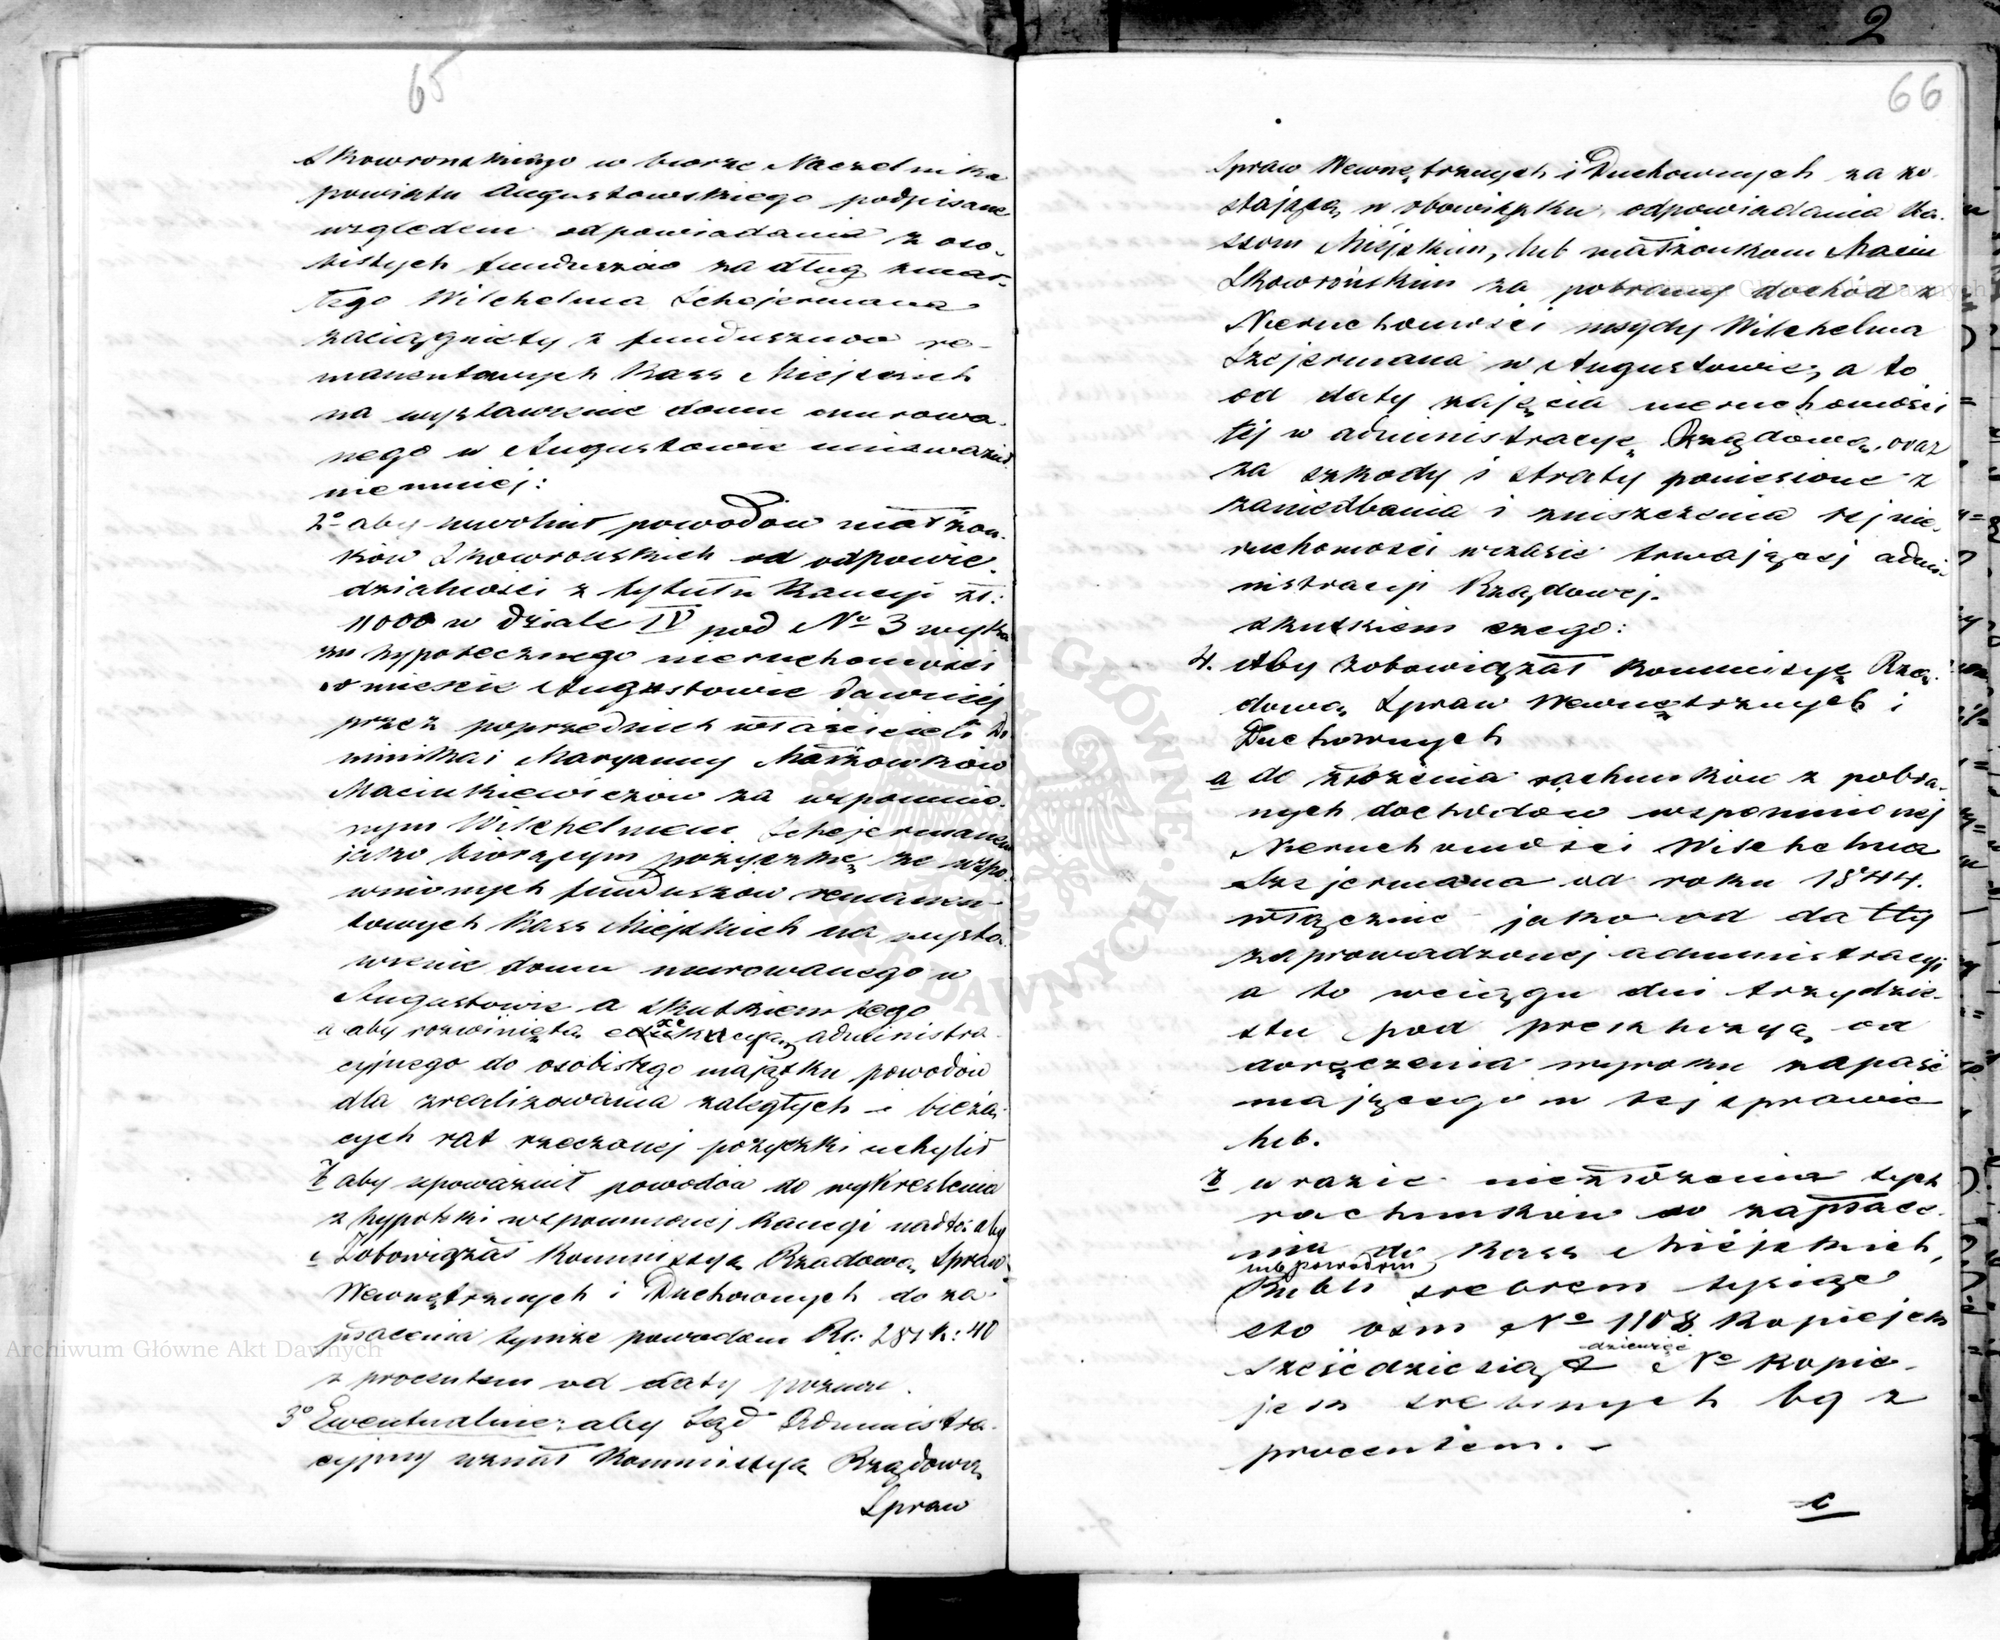 65
Skowronskiego w biorze Naczelnika
powiatu Augustowskiego podpisane
względem odpowiadania z oso-
bistych funduszów za dług zmar-
łego Wilchelma Schejermana
zaciągnięty z funduszów re-
manentowych Kass Miejskich
na wystawienie domu murowa-
nego w Augustowie unieważnił
niemniej:
2° aby uwolnił powodów małżon-
ków Skowrońskich od odpowie-
dzialności z tytułu Kaucji zł:
11000 w dziale IV pod No 3 wyka
zu hypotecznego nieruchomości
w mieście Augustowie dawniej
przez poprzednich właścicieli Do
minika i Maryanny Małżonków
Maciukiewiczów za wspomnio-
nym Wilchelmem Schejermanem
jako biorącym pożyczkę ze wspo-
mnionych funduszów remanen-
towych Kass Miejskich na wysta-
wienie domu murowanego w
Augustowie a skutkiem tego
a aby rozwiniętą administra-
cyjnego do osobistego majątku powodów
dla zrealizowania zaległych i bieżą-
cych rat rzeczonej pożyczki uchylił
b aby upoważnił powodów do wykreślenia
z hypoteki wspomnionej kaucji nadto aby
c Zobowiązał Kommissyą Rządową Spraw
Wewnętrznych i Duchownych do za-
płacenia tymże powodom Rs: 281 k: 40
z procentem od daty pozwu.
3° Ewentualnie: aby Sąd Administra-
cyjny uznał Kommissyą Rządową
Spraw
2
66
Spraw Wewnętrznych i Duchownych za zo-
stającą w obowiązku odpowiadania Ka-
ssom Miejskim, lub małżonkom Macin
Skowrońskim za pobrany dochód z
Nieruchomości niegdy Wilchelma
Szejermana w Augustowie, a to
od daty zajęcia nieruchomości
tej w administracyę Rządową, oraz
za szkody i straty poniesione z
zaniedbania i zniszczenia tej nie-
ruchomości wczasie trwającej admi-
nistracji Rządowej.
skutkiem czego:
4. Aby zobowiązał Kommissyę Rzą-
dową Spraw Wewnętrznych i
Duchownych
a do złożenia rachunków z pobra-
nych dochodów wspomnionej
Nieruchomości Wilchelma
Szejermana od roku 1844.
włącznie jako od datty
zaprowadzonej administracyi
a to wciągu dni trzydzie-
stu pod prekluzyą od
doręczenia wyroku zapaść
mającego w tej sprawie
lub.
b w razie niezłożenia tych
rachunków do zapłace-
nia do Kass Miejskich,
lub powodom
Rubli srebrem tysiąc
sto ośm No 1108 Kopiejek
dziewięć
sześćdziesiąt No kopie-
jek srebrnych 69 z
procentem. –
c
Archiwum Główne Akt Dawnych